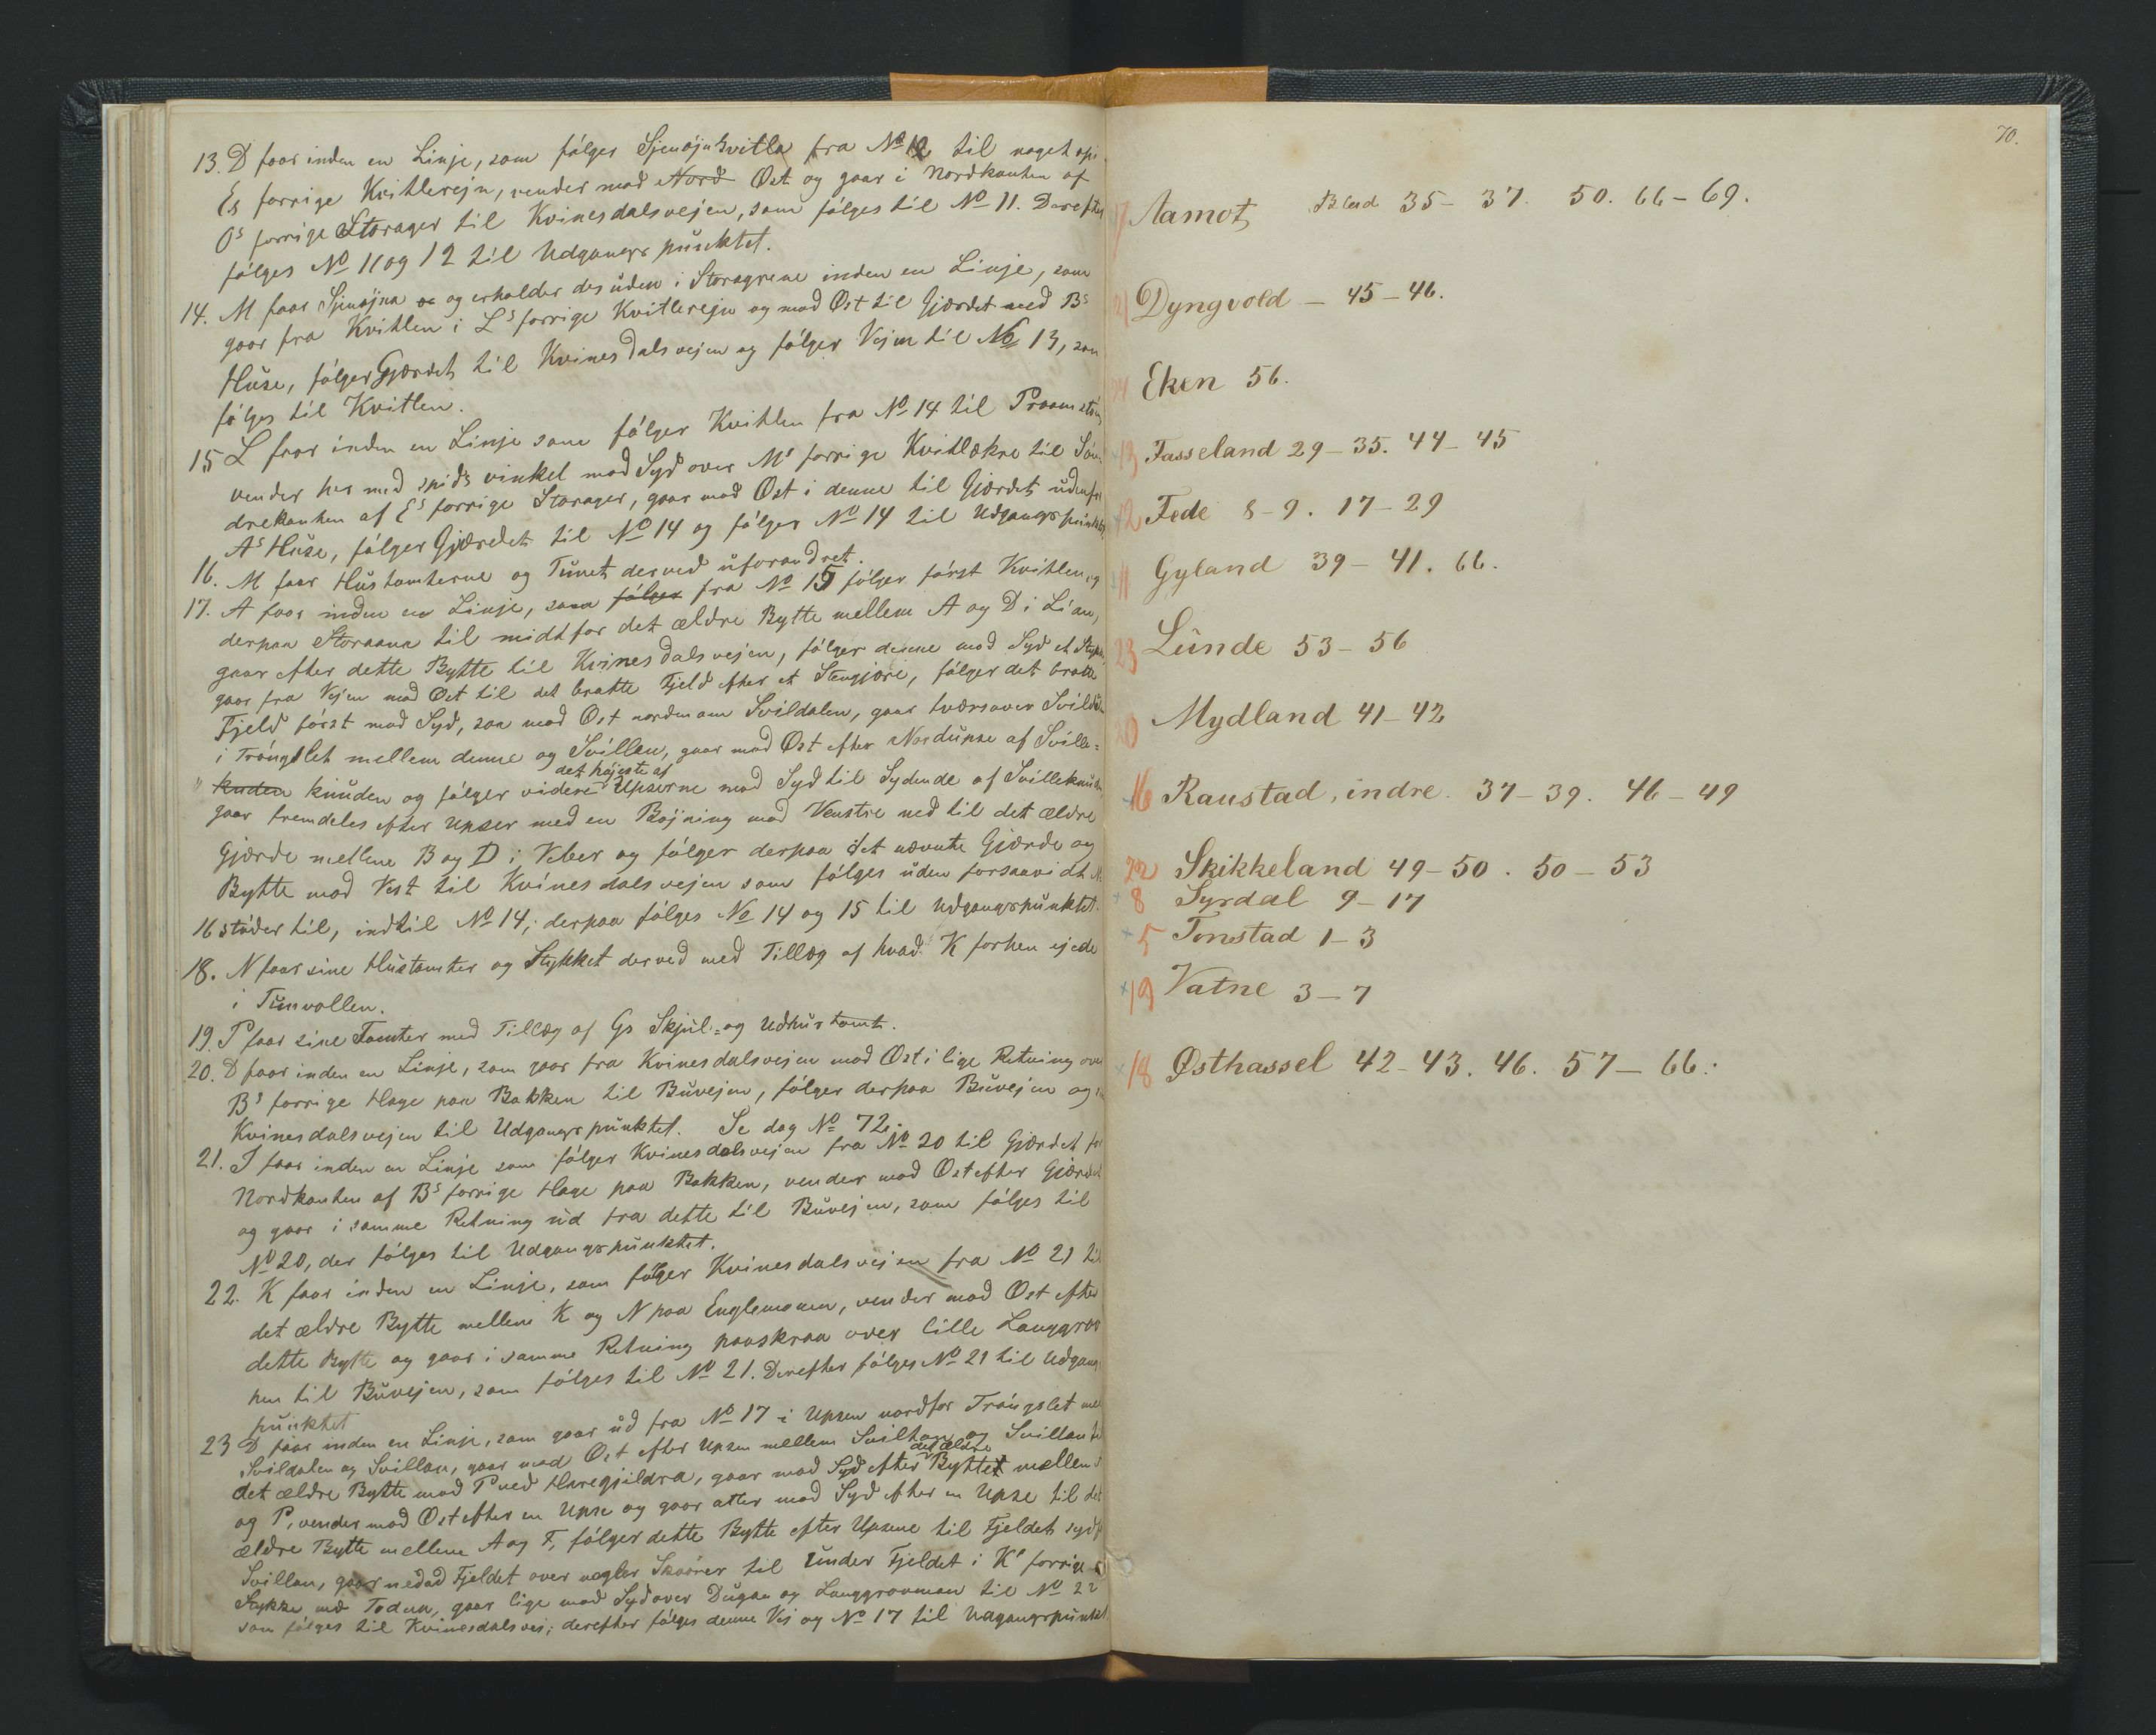 13. D faar inden en Linje, som følges Sjenøjn Kvitla fra No 12 til noget
Es forrige Kvitlerejn, vender mod Nord Øst og gaar i Nordkanten af
Os forrige Storager til Kvinesdalsvejen, som følges til No 11. Derefter
følges No 11 og 12 til Udgangspunktet.
14. M faar Sjenøjna og erholder desuden i Storagrene inden en Linje, som
gaar fra Kvitlen i Ls forrige Kvitlerejn og mod Øst til Gjærdet ned Bs
Huse, følger Gjærdet til Kvinesdalsvejen og følger Vejen til No 13, som
følges til Kvitlen.
15 L faar inden en Linje som følger Kvitlen fra No 14 til
vender her med spids vinkel mod Syd over Ms forrige Kvitlækre til Søn-
drekanten af Es forrige Storager, gaar mod Øst i denne til Gjærdet udenfor
As Huse, følger Gjærdet til No 14 og følger No 14 til Udgangspunktet.
16. M faar Hustomterne og Tunet derved uforandret.
17. A faar inden en Linje, som følger fra No 15 følger først Kvitlen og
derpaa Storaana til midt for det ældre Bytte mellem A og D i Lian,
gaar efter dette Bytte til Kvinesdalsvejen, følger denne mod Syd et Stykke,
gaar fra Vejen mod Øst til det bratte Fjeld efter et Stengjøre, følger det bratte
Fjeld først mod Syd, saa mod Øst nordenom Svildalen, gaar tværsover Svildalen
i Trángslet mellem denne og Svillan, gaar mod Øst efter Nordupse af Sville=
" knuden knuden og følger videre det højeste af Upserne mod Syd til Sydende af Svilleknuden
gaar fremdeles efter Upser med en Bøjning mod Venstre ned til det ældre
Gjærde mellem B og D i Veber og følger derpaa det nævnte Gjærde og
Bytte mod Vest til Kvinesdalsvejen som følges uden forsaavidt No
16 støder til, indtil No 14; derpaa følges No 14 og 15 til Udgangspunktet.
18. N faar sine Hustomter og Stykket derved med Tillæg af hvad K forhen ejede
i Tunvollen.
19. P faar sine Tomter med Tillæg af Gs Skjul= og Udhustomt.
20. D faar inden en Linje, som gaar fra Kvinesdalsvejen mod Øst i lige Retning over
Bs forrige Hage paa Bakken til Buvejen, følger derpaa Buvejen og
Kvinesdalsvejen til Udgangspunktet. Se dog No 72.
21. I faar inden en Linje som følger Kvinesdalsvejen fra No 20 til Gjærdet for
Nordkanten af Bs forrige Hage paa Bakken, vender mod Øst efter Gjærdet
og gaar i samme Retning ud fra dette til Buvejen, som følges til
No 20, der følges til Udgangspunktet.
22. K faar inden en Linje, som følger Kvinesdalsvejen fra No 21 til
det ældre Bytte mellem K og N paa Englemonen, vender mod Øst efter
dette Bytte og gaar i samme Retning paaskraa over lille Langgrov
hen til Buvejen, som følges til No 21. Derefter følges No 21 til Udgangs
punktet
23 D faar inden en Linje, som gaar ud fra No 17 i Upsen nordfor Trángslet mel
Svildalen og Svillan, gaar mod Øst efter Upsen mellem og Svillan til
det ældre Bytte mod P ved Haregjildra, gaar mod Syd efter det ældre Byttet mellem
og P, vender mod Øst efter en Upse og gaar atter mod Syd efter en Upse til det
ældre Bytte mellem A og F, følger dette Bytte efter Upsene til Fjeldet sydfor
Svillan, gaar nedad Fjeldet over nogler Skorer til under Fjeldet i Ks forrige
Stykke ved Toden, gaar lige mod Syd over Dugan og Langgrovmoen til No 22
som følges til Kvinesdalsvej; derefter følges denne Vej og No 17 til Udgangspunktet
70.
17 Aamot Blad 35 - 37. 50. 66 - 69.
21 Dyngvold - 45 - 46.
24 Eken 56.
+13 Fasseland 29 - 35. 44 - 45
+12 Fede 8 - 9. 17 - 29
+11 Gyland 39 - 41. 66.
23 Lunde 53 - 56
20 Mydland 41 - 42
+16 Raustad, indre. 37 - 39. 46 - 49
22 Skikkeland 49 - 50. 50 - 53
+8 Syrdal 9 - 17
+5 Tonstad 1 - 3
+19 Vatne 3 - 7
+18 Østhassel 42 - 43. 46. 57 - 66.